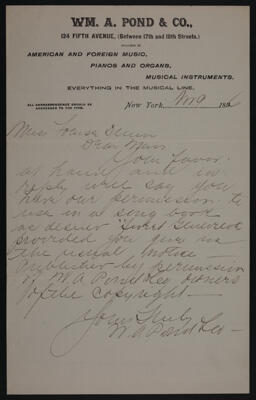 WM. A. POND & CO.,
124 FIFTH AVENUE, (Between 17th and 18th Streets.)
DEALERS IN
AMERICAN AND FOREIGN MUSIC,
PIANOS AND ORGANS,
MUSICAL INSTRUMENTS,
EVERYTHING IN THE MUSICAL LINE.
ALL CORRESPONDENCE SHOULD BE
ADDRESSED TO THE FIRM.
New York, Nov 9 189
Miss Louisa
Dear Miss
Your favor
at hand and in
reply will say you
have our permission to
use in a song book
as desired
provided you give us
the usual notice -
Published by permission
of W A Pond & Co owners
of the copyright -
Yours Truly
W. A. Pond & Co -